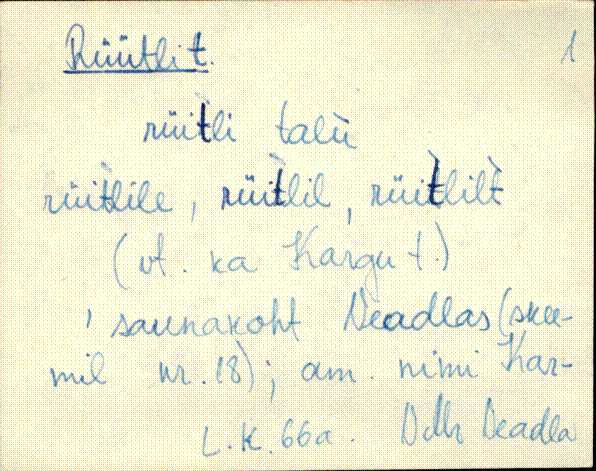 Rüütli t. 1
rüit̀li talù
rüit̀lile, rüit̀lil, rüit̀lilt̀
(vt. ka Kargu t.)
, saunakoht Deadlas (skee-
mil nr. 18); am. nimi Kar-
L.K. 66a. Deadla